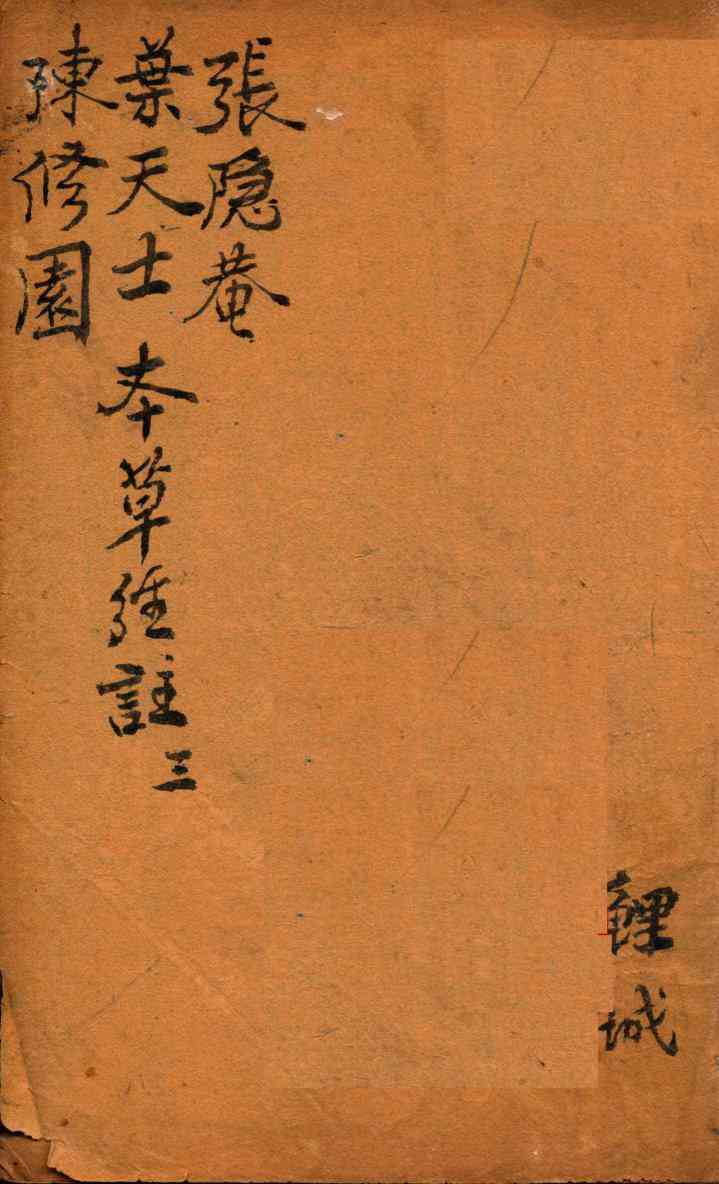 張隐菴
葉天士
陳修園
本草經註三
城